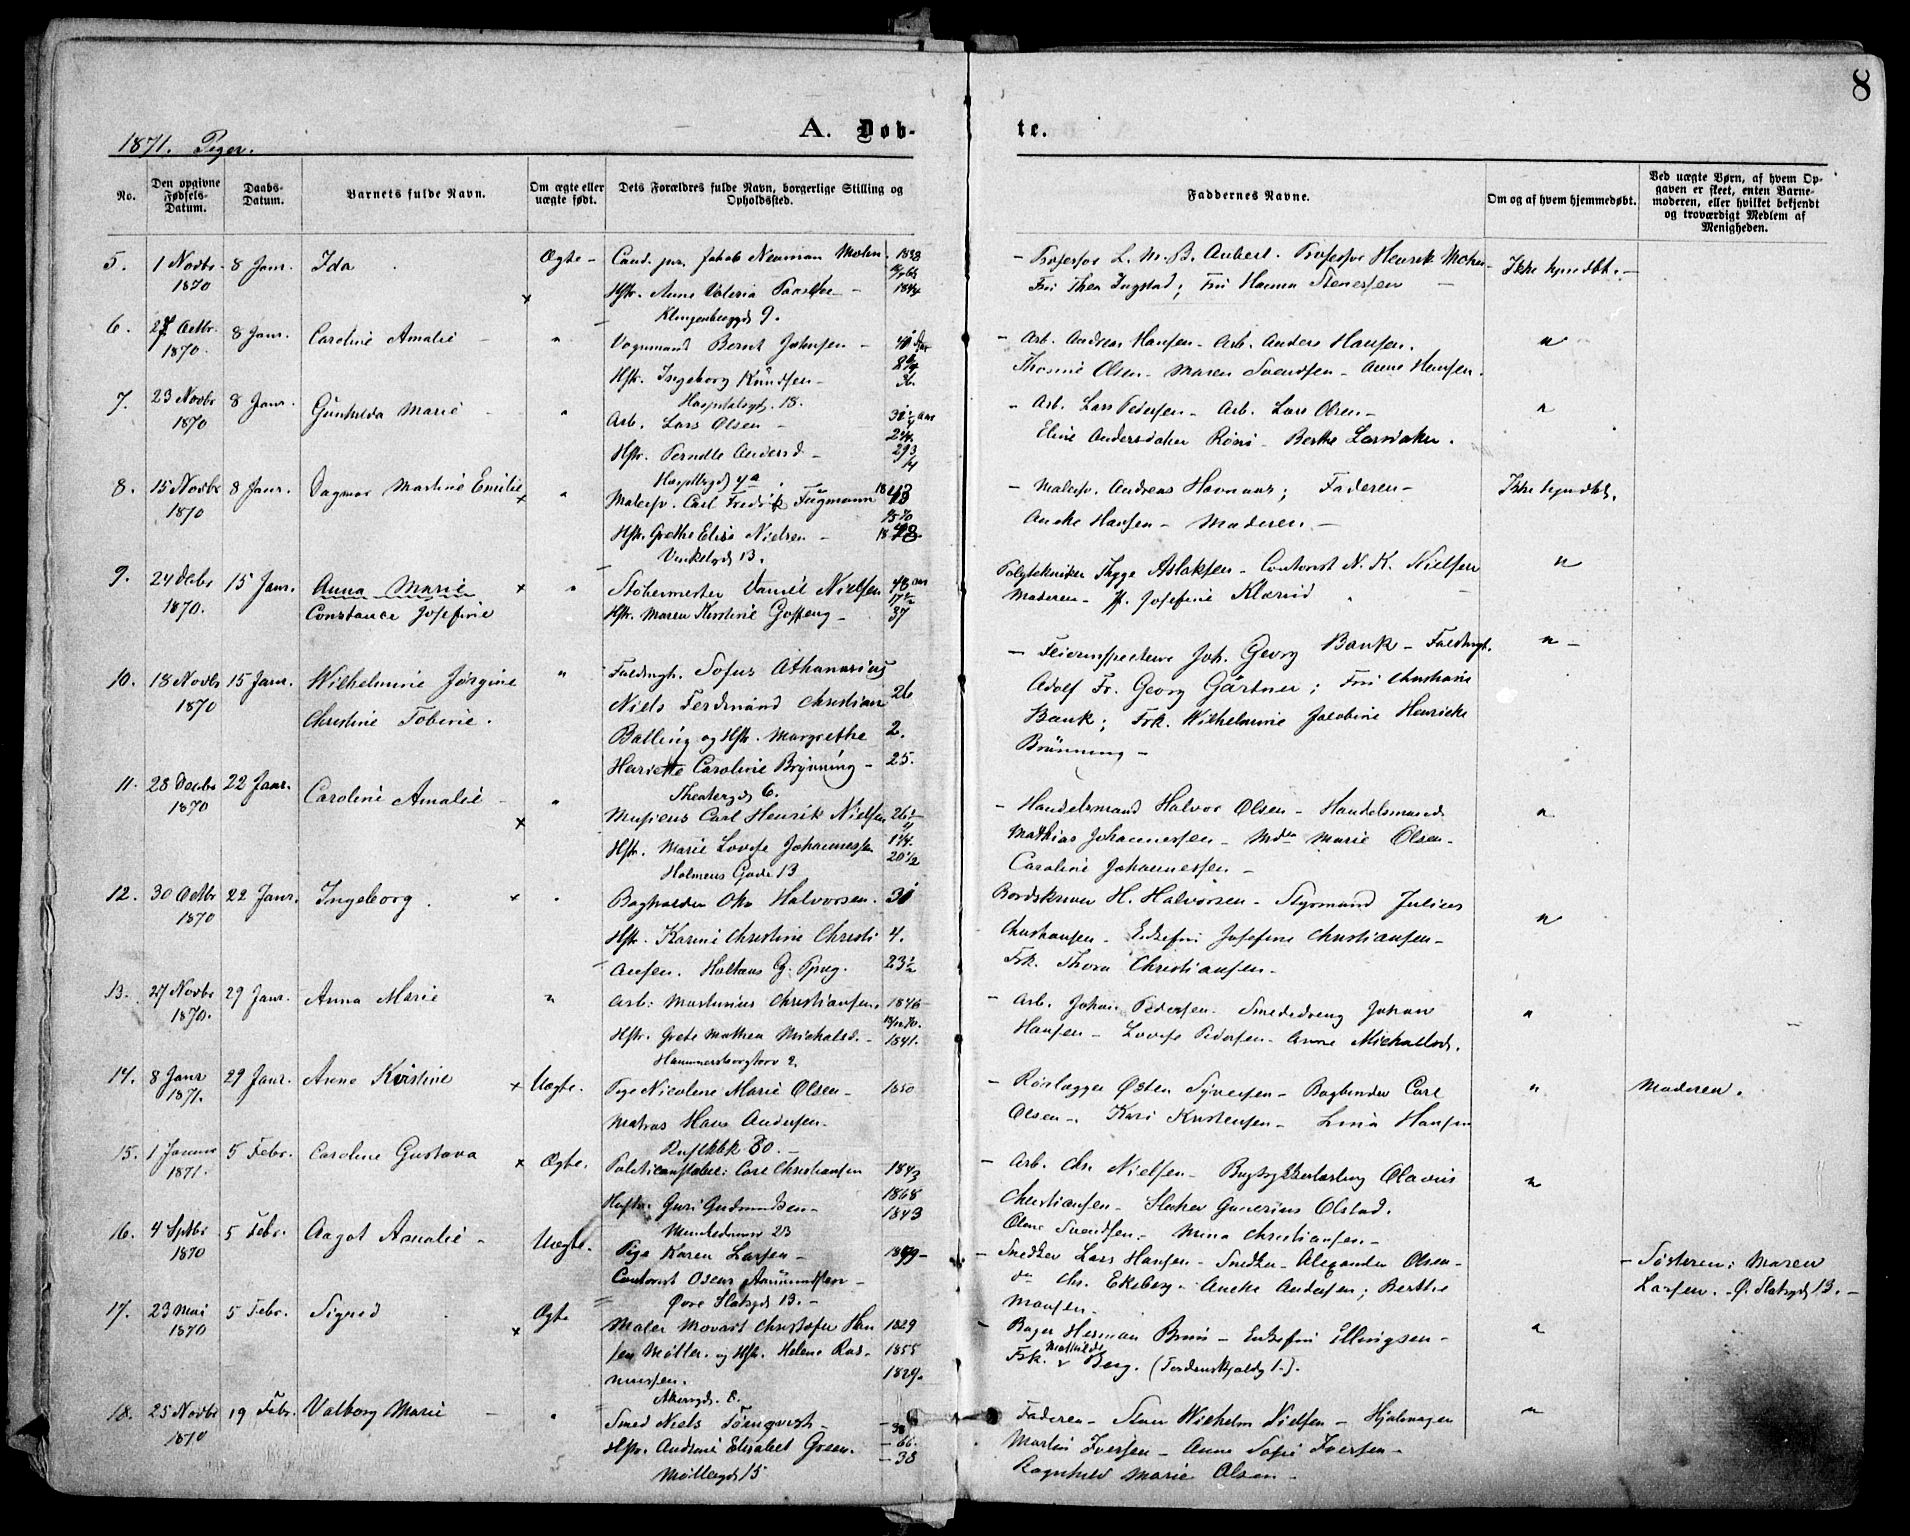 8
1871. Piger.
A. Døb-
te.
No.
Den opgivne Fødsels-Datum.
Daabs-Datum.
Barnets fulde Navn.
Om ægte eller uægte født.
Dets Forældres fulde Navn, borgerlige Stilling og Opholdssted.
Faddernes Navne.
Om og af hvem hjemmedøbt.
Ved uægte Børn, af hvem Opgaven er skeet, enten Barnemoderen, eller hvilket bekjendt og troværdigt Medlem af Menigheden.
5. 1 Novbr 1870 8 Janr. Ida Ægte
Cand. jur. Jakob Neuman Mohn 1838
Hstr. Anne Valeria 1844
Klingenberggd 9.
Professor L. M. B. Aubert. Professor Henrik Mohn
Fru Thea Ingstad; Fru Hanna Stenersen
Ikke hjmdbt.
6. Octbr. 1870. 8 Janr. Caroline Amalie "
Vognmand Bernt Johnsen
Hstr. Ingeborg Knudsen 36.
Hospitalsgt. 18.
Arb. Andreas Hansen - Arb. Anders Hansen.
Olsen - Maren Svendsen - Anne Hansen.
"
7. 23 Novbr 1870 8 Janr. Gunhilda Marie "
Arb. Lars Olsen
Hstr. Pernelle Andersd
Arb. Lars Pedersen - Arb. Lars Olsen
Eline Andersdatter - Berthe Larsdatter.
"
8. 15 Novbr 1870 8 Janr. Dagmar Martine Emilie × "
Malersv. Carl Fredrik Fugmann
Hstr. Grethe Elise Nielsen
Vinkelgd 13.
Malersv. Andreas Havnaas; Faderen
Aneke Hansen - Moderen
Ikke hjmdbt.
9. 24 Decbr 1870. 15 Janr. Anna Marie × "
Constance Josefine
Støbermester Daniel Nielsen 48 aar
Hstr. Maren Kirstine 37
Polytekniker Thygge Aslaksen - Contorist N. K. Nielsen
Moderen - Josefine
"
10. 18 Novbr 1870 15 Janr. Wilhelmine Jørgine "
Christine Tobine.
Fuldmgt. Sofus Athanasius
Niels Ferdinand Christian 26
Balling og Hstr. Margrethe 2.
Henriette Caroline Brynning 25.
Theatergd 6.
Joh. Georg Bank - Fuldmgt.
Adolf Fr. Georg Gärtner; Fru Christiane
Bank; Frk. Wilhelmine Jacobine Henrikke
Brünning
"
11. 28 Decbr 1870 22 Janr. Caroline Amalie × "
Musicus Carl Henrik Nielsen
Hstr. Marie Lovise Johannessen 20 1/2
Holmens Gade 13
Handelsmand Halvor Olsen - Handelsmand
Mathias Johannessen - Mdm Marie Olsen
Caroline Johannessen
"
12. 30 Octbr 1870 22 Janr. Ingeborg. × "
Bogholder Halvorsen. 31
Hstr. Karine Christine Christi 4.
ansen. Holtans G. Pprvg. 23 1/2
H. Halvorsen - Styrmand Julius
Christiansen - Enkefru Josefine Christiansen
Frk. Thora Christiansen
"
13. 27 Novbr 1870. 29 Janr. Anna Marie "
Arb. Martinius Christiansen 1846
Hstr. Grete Mathea Michalsd. 1841.
Hammersborgtorv 2.
Arb. Johan Pedersen - Smededreng Johan
Hansen - Lovise Pedersen - Anne Michalsd.
"
14. 8 Janr 1871. 29 Janr. Anne Kristine × Uægte.
Pige Nicolene Marie Olsen 1850
Matros Hans Andersen
Rørlægger Østen Syversen - Bogbinder Carl
Olsen - Kari Kristensen - Lina Hansen
"
Moderen.
15. 1 Januar 1871. 5 Febr. Caroline Gustava × Ægte.
Politiconstabel: Carl Christiansen 1843
Hustr. Guri Gudmundsen 1868 1843
Munkedamsv 23
Arb. Chr. Nielsen - Olavus
Christiansen - Gunerius Olstad.
Svendsen - Mina Christiansen
"
16. 4 Sptbr 1870 5 Febr. Aagot Amalie Uægte.
Pige Karen Larsen 1849
Contorist
Øvre Slotsgd 13.
Snedker Lars Hansen - Snedker Alexander Olsen
do Chr. Ekeberg - Aneke Andersen; Berthe
Monsen
Søsteren: Maren
Larsen. Ø. Slotsgd 13.
17. 23 Mai 1870 5 Febr. Sigrid × Ægte
Maler Movart Christofer Han 1829
sen Møller og Hstr. Helene Ras- 1855
mussen. 1829.
Akersgd. 8.
Bager Herman - Enkefru Ellingsen
Frk. Mathilde Berg. (Tordenskjoldg 1.).
"
18. 25 Novbr 1870 19 Febr. Valborg Marie "
Smed Niels Törnqvist 38
Hstr. Andrine Elisabet Green. 66. 38
Møllergd 15
Faderen - Wilhelm Nielsen - Hjulmager
Martin Iversen - Anne Sofie Iversen
Ragnhild Marie Olsen
"